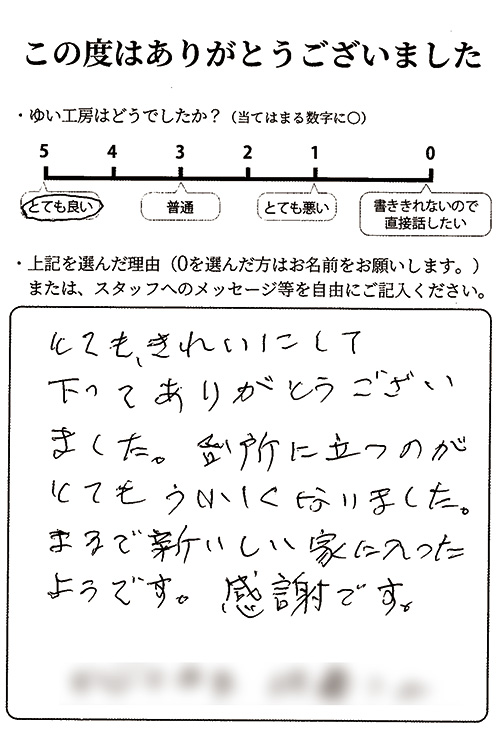 この度はありがとうございました
・ゆい工房はどうでしたか？（当てはまる数字に〇）
5 4 3 2 1 0
とても良い 普通 とても悪い 書ききれないので
直接話したい
・上記を選んだ理由（0を選んだ方はお名前をお願いします。）
または、スタッフへのメッセージ等を自由にご記入ください。
とても、きれいにして
下ってありがとうござい
ました。台所に立つのが
とてもうれしくなりました。
まるで新いしい家に入った
ようです。感謝です。